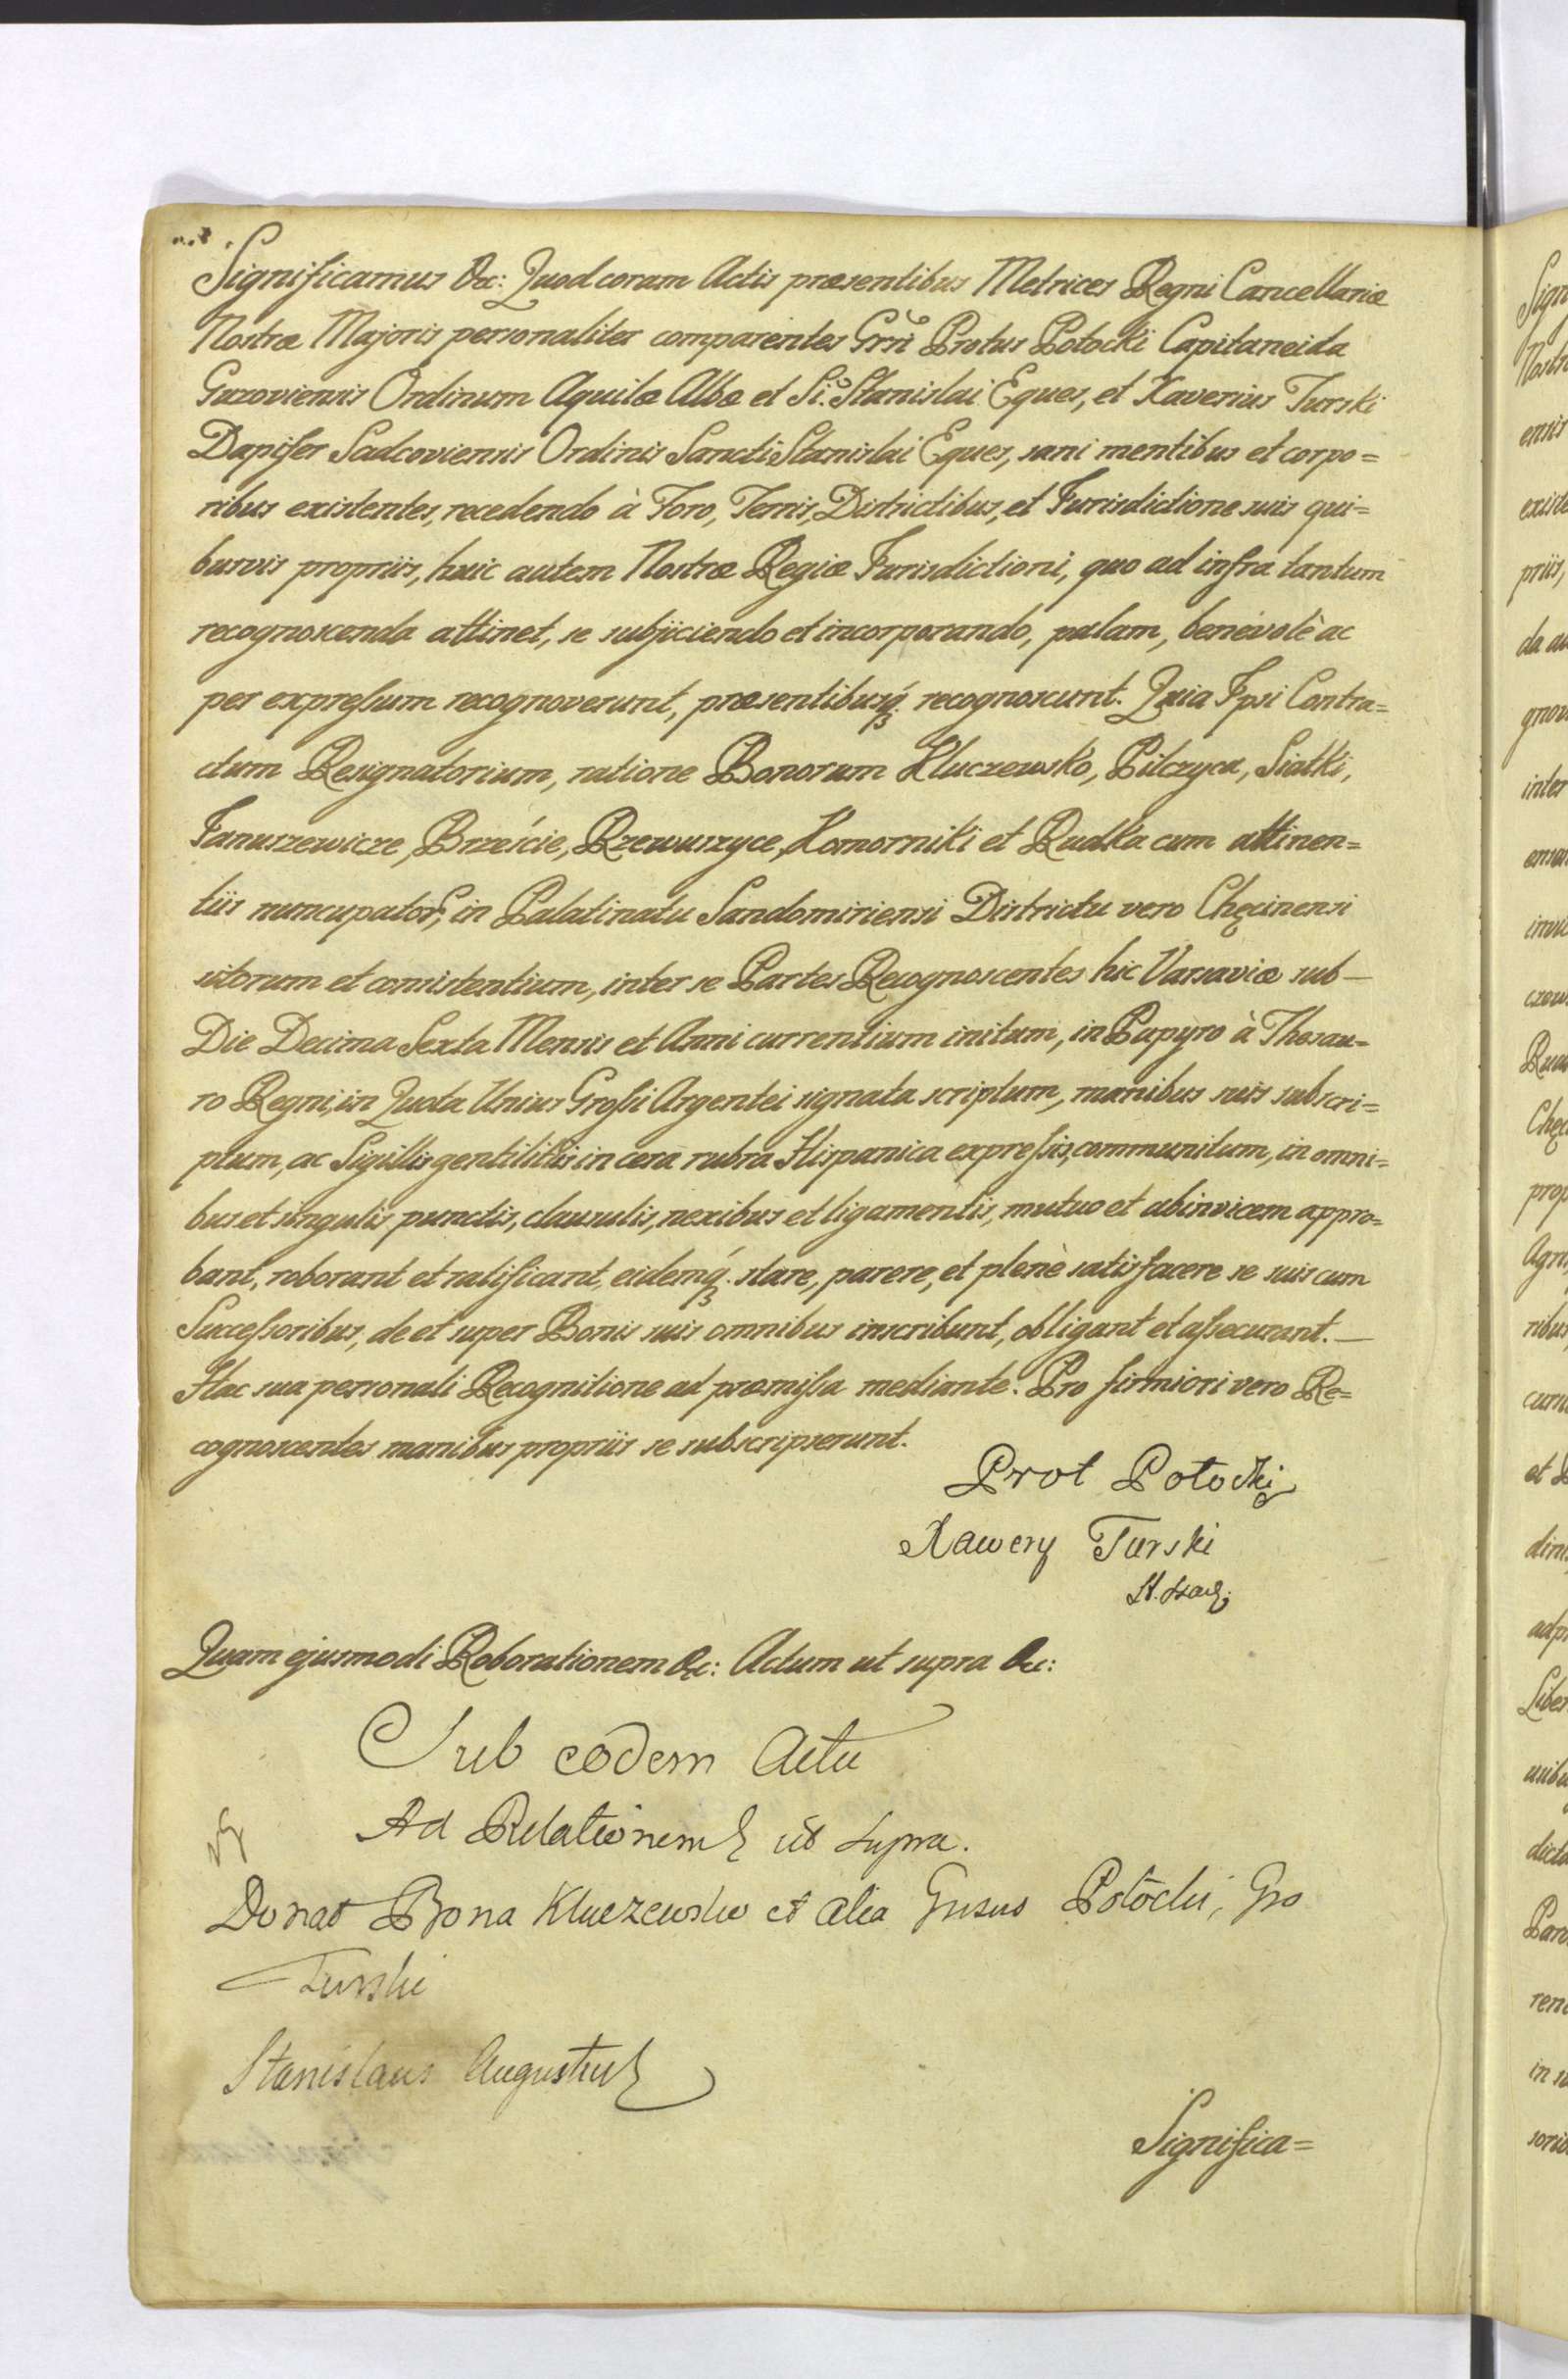 Significamus &c: Quod coram Actis præsentibus Metrices Regni Cancellariæ
Nostræ Majoris personaliter comparentes Grñi Protus Potocki Capitaneida
Guzoviensis Ordinum Aquilæ Albæ et Si: Stanislai Eques, et Xaverius Turski
Dapifer Sadcoviensis Ordinis Sancti Stanislai Eques, sani mentibus et corpo=
ribus existentes, recedendo à Foro, Terris, Districtibus, et Jurisdictione suis qui=
busvis propriis, huic autem Nostræ Regiæ Jurisdictioni, quo ad infra tantum
recognoscenda attinet, se subjiciendo et incorporando, palam, benevolè ac
per expressum recognoverunt, præsentibusq́; recognoscunt. Quia Ipsi Contra=
ctum Resignatorium, ratione Bonorum Kluczewsko, Pilczyca, Siatki,
Januszewicze, Brzeście, Rzewuszyce, Komorniki et Rudka cum attinen=
tiis nuncupator, in Palatinatu Sandomiriensi Districtu vero Chęcinensi
sitorum et consistentium, inter se Partes Recognoscentes hic Varsaviæ sub —
Die Decima Sexta Mensis et Anni currentium initum, in Papyro à Thesau=
ro Regni, in Quota Unius Grossi Argentei signata scriptum, manibus suis subscri=
ptum, ac Sigillis gentilitiis in cera rubra Hispanica expressis, communitum, in omni=
bus et singulis punctis, clausulis, nexibus et ligamentis, mutuo et abinvicem appro=
bant, roborant et ratificant, eidemq́; stare, parere, et plenè satisfacere se suis cum
Successoribus, de et super Bonis suis omnibus inscribunt, obligant et assecurant. —
Hac sua personali Recognitione ad præmissa mediante. Pro firmiori vero Re=
cognoscentes manibus propriis se subscripserunt.
Prot Potocki
Xawery Turski
Quam ejusmodi Roborationem &c: Actum ut supra &c:
Sub eodem Actu
Ad Relationem ut supra.
Donat Bona Kluczewsko et alia Potocki, Gro
Turski
Stanislaus Augustus
Significa=